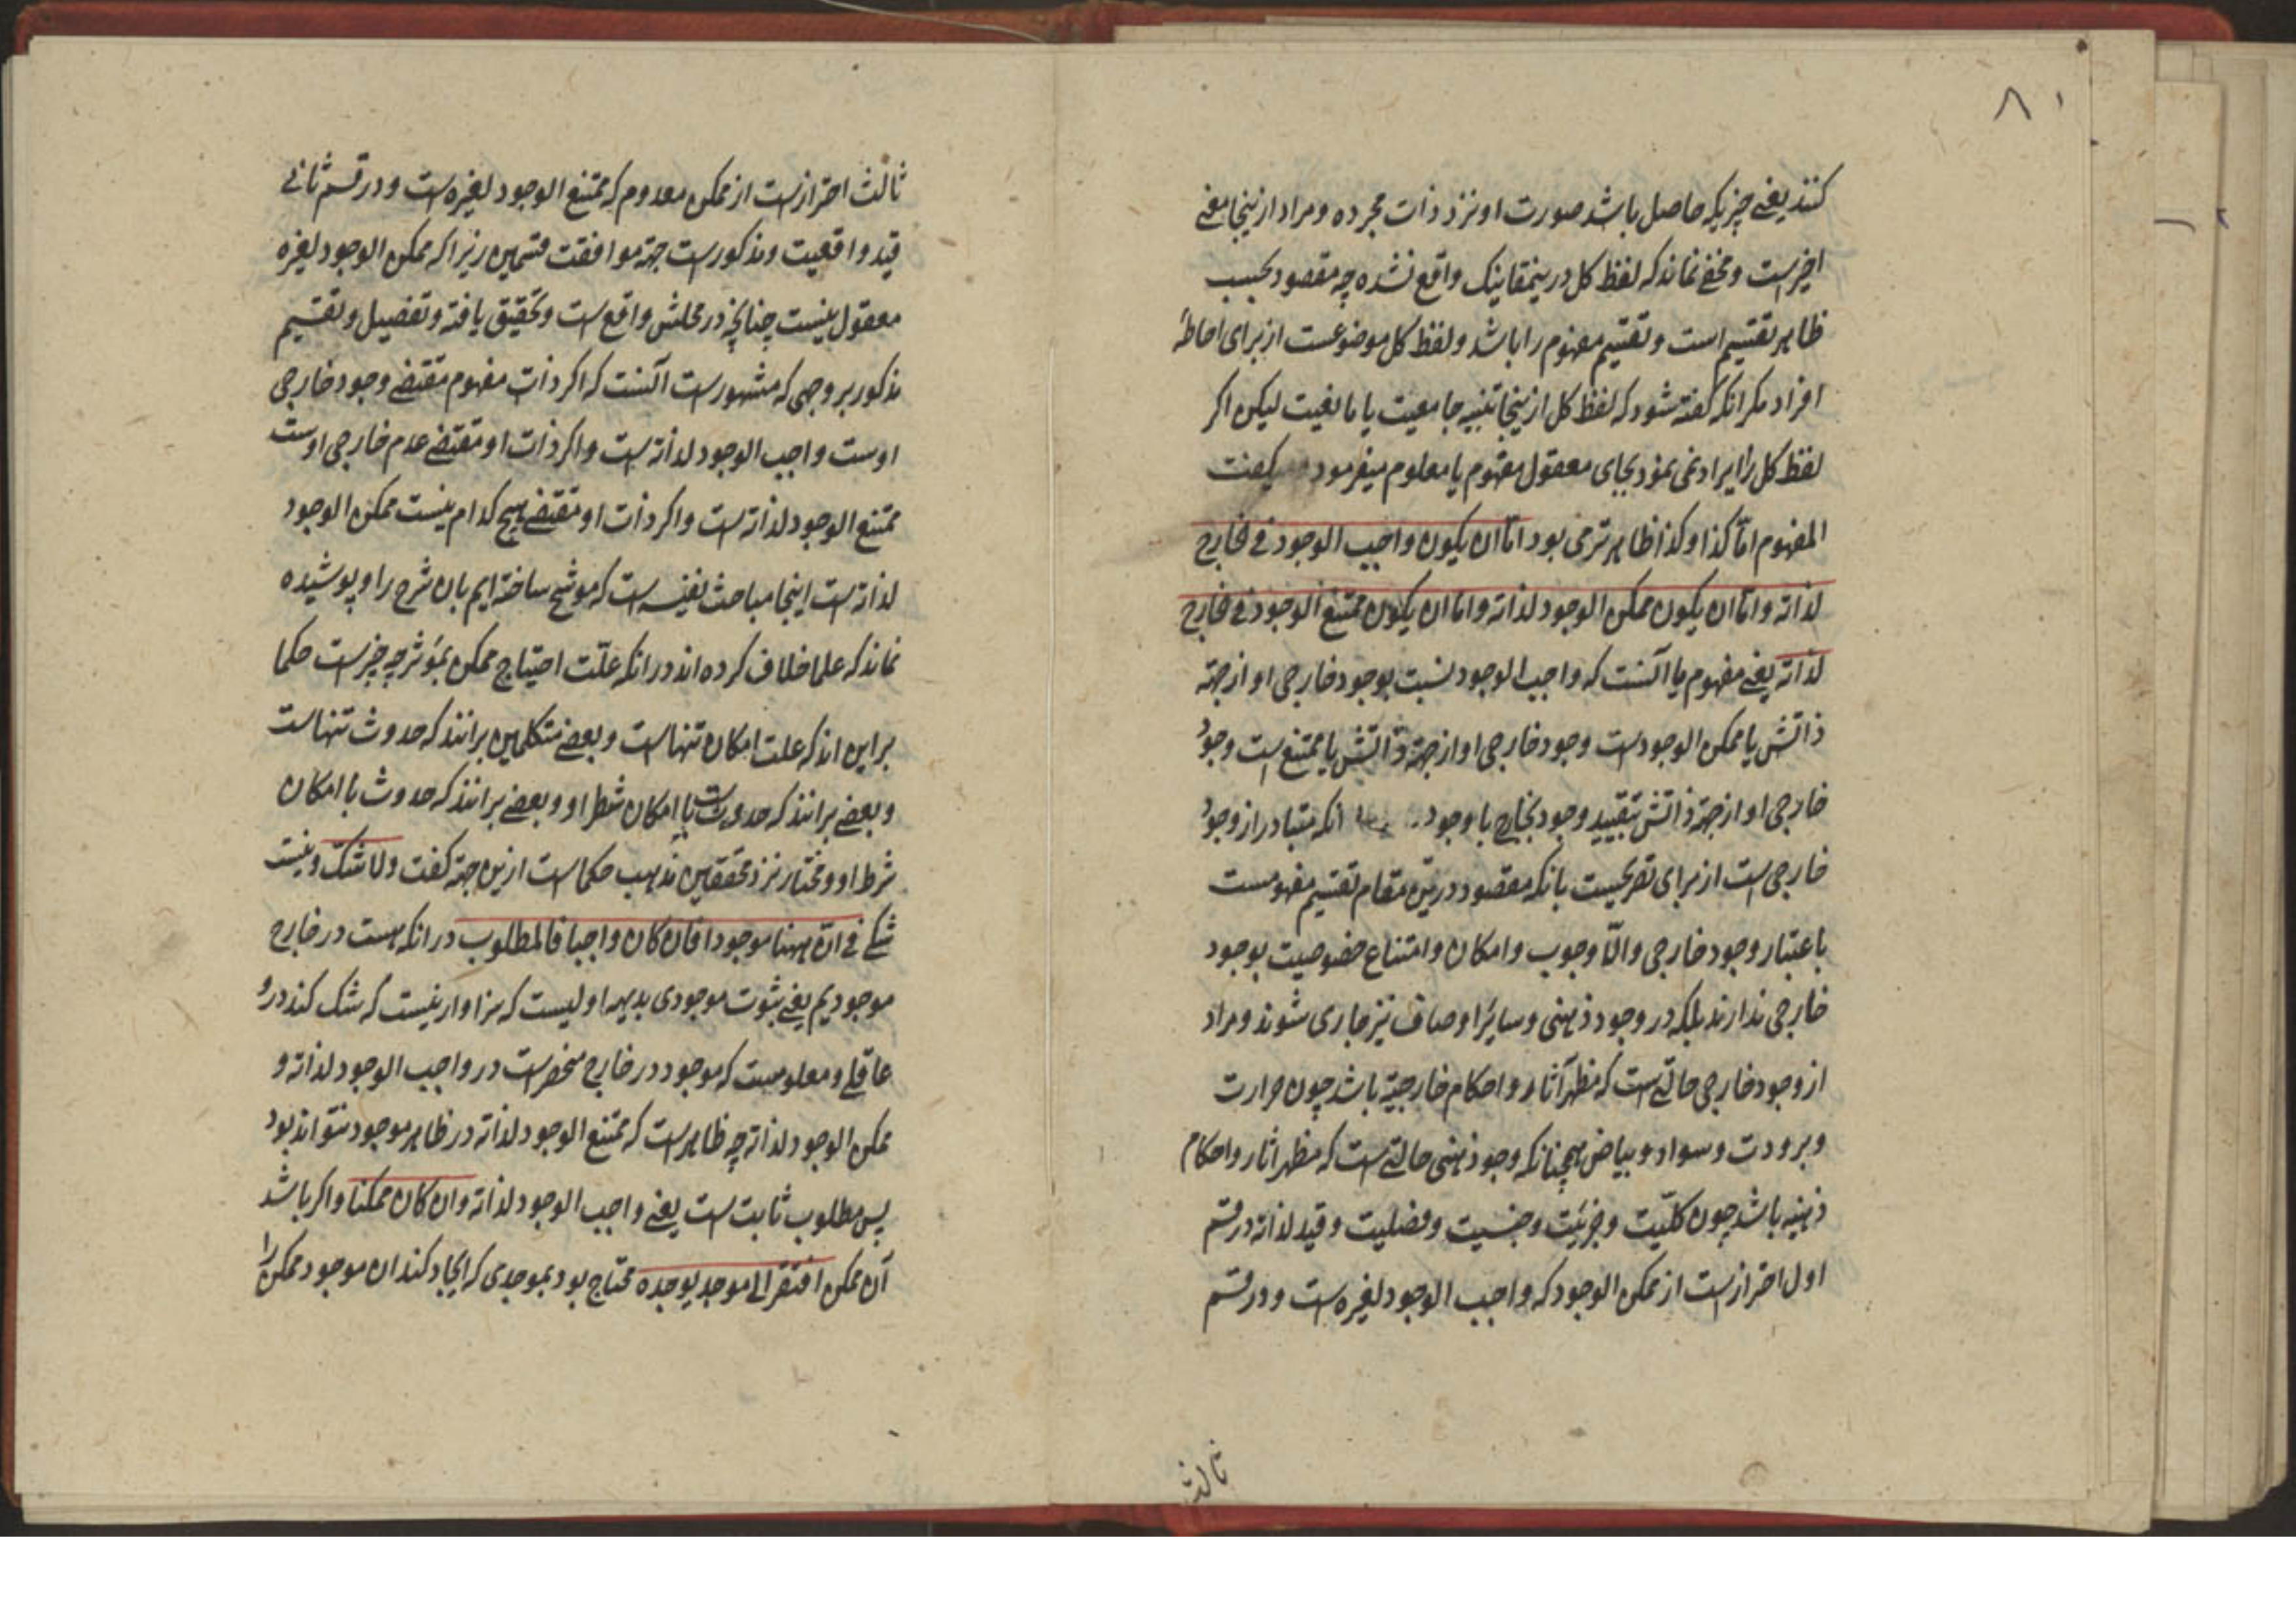 ۸۱
کنند یعنی چیزیکه حاصل باشد صورت او نزد ذات مجرده و مراد ازینجا معنی
اخیرست و مخفی نماند که لفظ کل درینمقام نیک واقع نشده چه مقصود بحسب
ظاهر تقسیم است و تقسیم مفهوم را باشد و لفظ کل موضوعست از برای احاطهٔ
افراد مکر انکه کفته شود که لفظ کل ازینجا تنبیه جامعیت یا مانعیت لیکن اکر
لفظ کل را ایراد نمی نمود بجای معقول مفهوم یا معلوم میفرمود یکفت
المفهوم امّا کذا و کذا ظاهرتر می بود امّا ان یکون واجب الوجود فی الخارج
لذاته و امّا ان یکون ممکن الوجود لذاته و اما ان یکون ممتنع الوجود فی الخارج
لذاته یعنی مفهوم یا آنست که واجب الوجود نسبت بوجود خارجی او از جهة
ذاتش یا ممکن الوجودست وجود خارجی او از جهة ذاتش یا ممتنع است وجود
خارجی او از جهة ذاتش تقیید وجود بخارج با وجود انکه متبادر از وجود
خارجی است از برای تصریحیست بانکه مقصود درین مقام تقسیم مفهومست
باعتبار وجود خارجی و الّا وجوب و امکان و امتناع خصوصیت بوجود
خارجی ندارند بلکه در وجود ذهنی و سایر اوصاف نیز جاری شوند و مراد
از وجود خارجی حالتی است که مظهر آثار و احکام خارجیّه باشد چون حرارت
و برودت و سواد و بیاض همچنانکه وجود ذهنی حالتی است که مظهر اثار و احکام
ذهنیه باشد چون کلیّت و جزئیّت و جنسیت و فصلیت و قید لذاته در قسم
اول احترازست از ممکن الوجود که واجب الوجود لغیره است و در قسم
ثالث
ثالث احترازست از ممکن معدوم که ممتنع الوجود لغیره است و در قسم ثانی
قید واقعیت و مذکورست جهة موافقت قسمین زیرا که ممکن الوجود لغیره
معقول نیست چنانچه در محلش واقع است و تحقیق یافته و تفصیل و تقسیم
مذکور بر وجهی که مشهورست آنست که اکر ذات مفهوم مقتضی وجود خارجی
اوست واجب الوجود لذاته است و اکر ذات او مقتضی عدم خارجی اوست
ممتنع الوجود لذاته است و اکر ذات او مقتضی هیچ کدام نیست ممکن الوجود
لذاته است اینجا مباحث نفیسه است که موشح ساخته ایم بان شرح را و پوشیده
نماند که علما خلاف کرده اند در انکه علّت احتیاج ممکن بمؤثر چه چیزست حکما
براین اند که علت امکان تنهاست و بعضی متکلمین برانند که حدوث تنهاست
و بعضی برانند که حدوث با امکان شطر او و بعضی برانند که حدوث با امکان
شرط او و مختار نزد محققین مذهب حکماست ازین جهة کفت و لا شک و نیست
شکی فی انّ ههنا موجودا فان کان واجبا فالمطلوب در انکه هست در خارج
موجودیم یعنی ثبوت موجودی بدیهه اولیست که سزاوار نیست که شک کند درو
عاقلی و معلومست که موجود در خارج منحصرست در واجب الوجود لذاته و
ممکن الوجود لذاته چه ظاهرست که ممتنع الوجود لذاته در ظاهر موجود نتواند بود
پس مطلوب ثابت است یعنی واجب الوجود لذاته و ان کان ممکنا و اکر باشد
آن ممکن افتقر الی موجد یوجده محتاج بود بموجدی که ایجاد کند ان موجود ممکن را